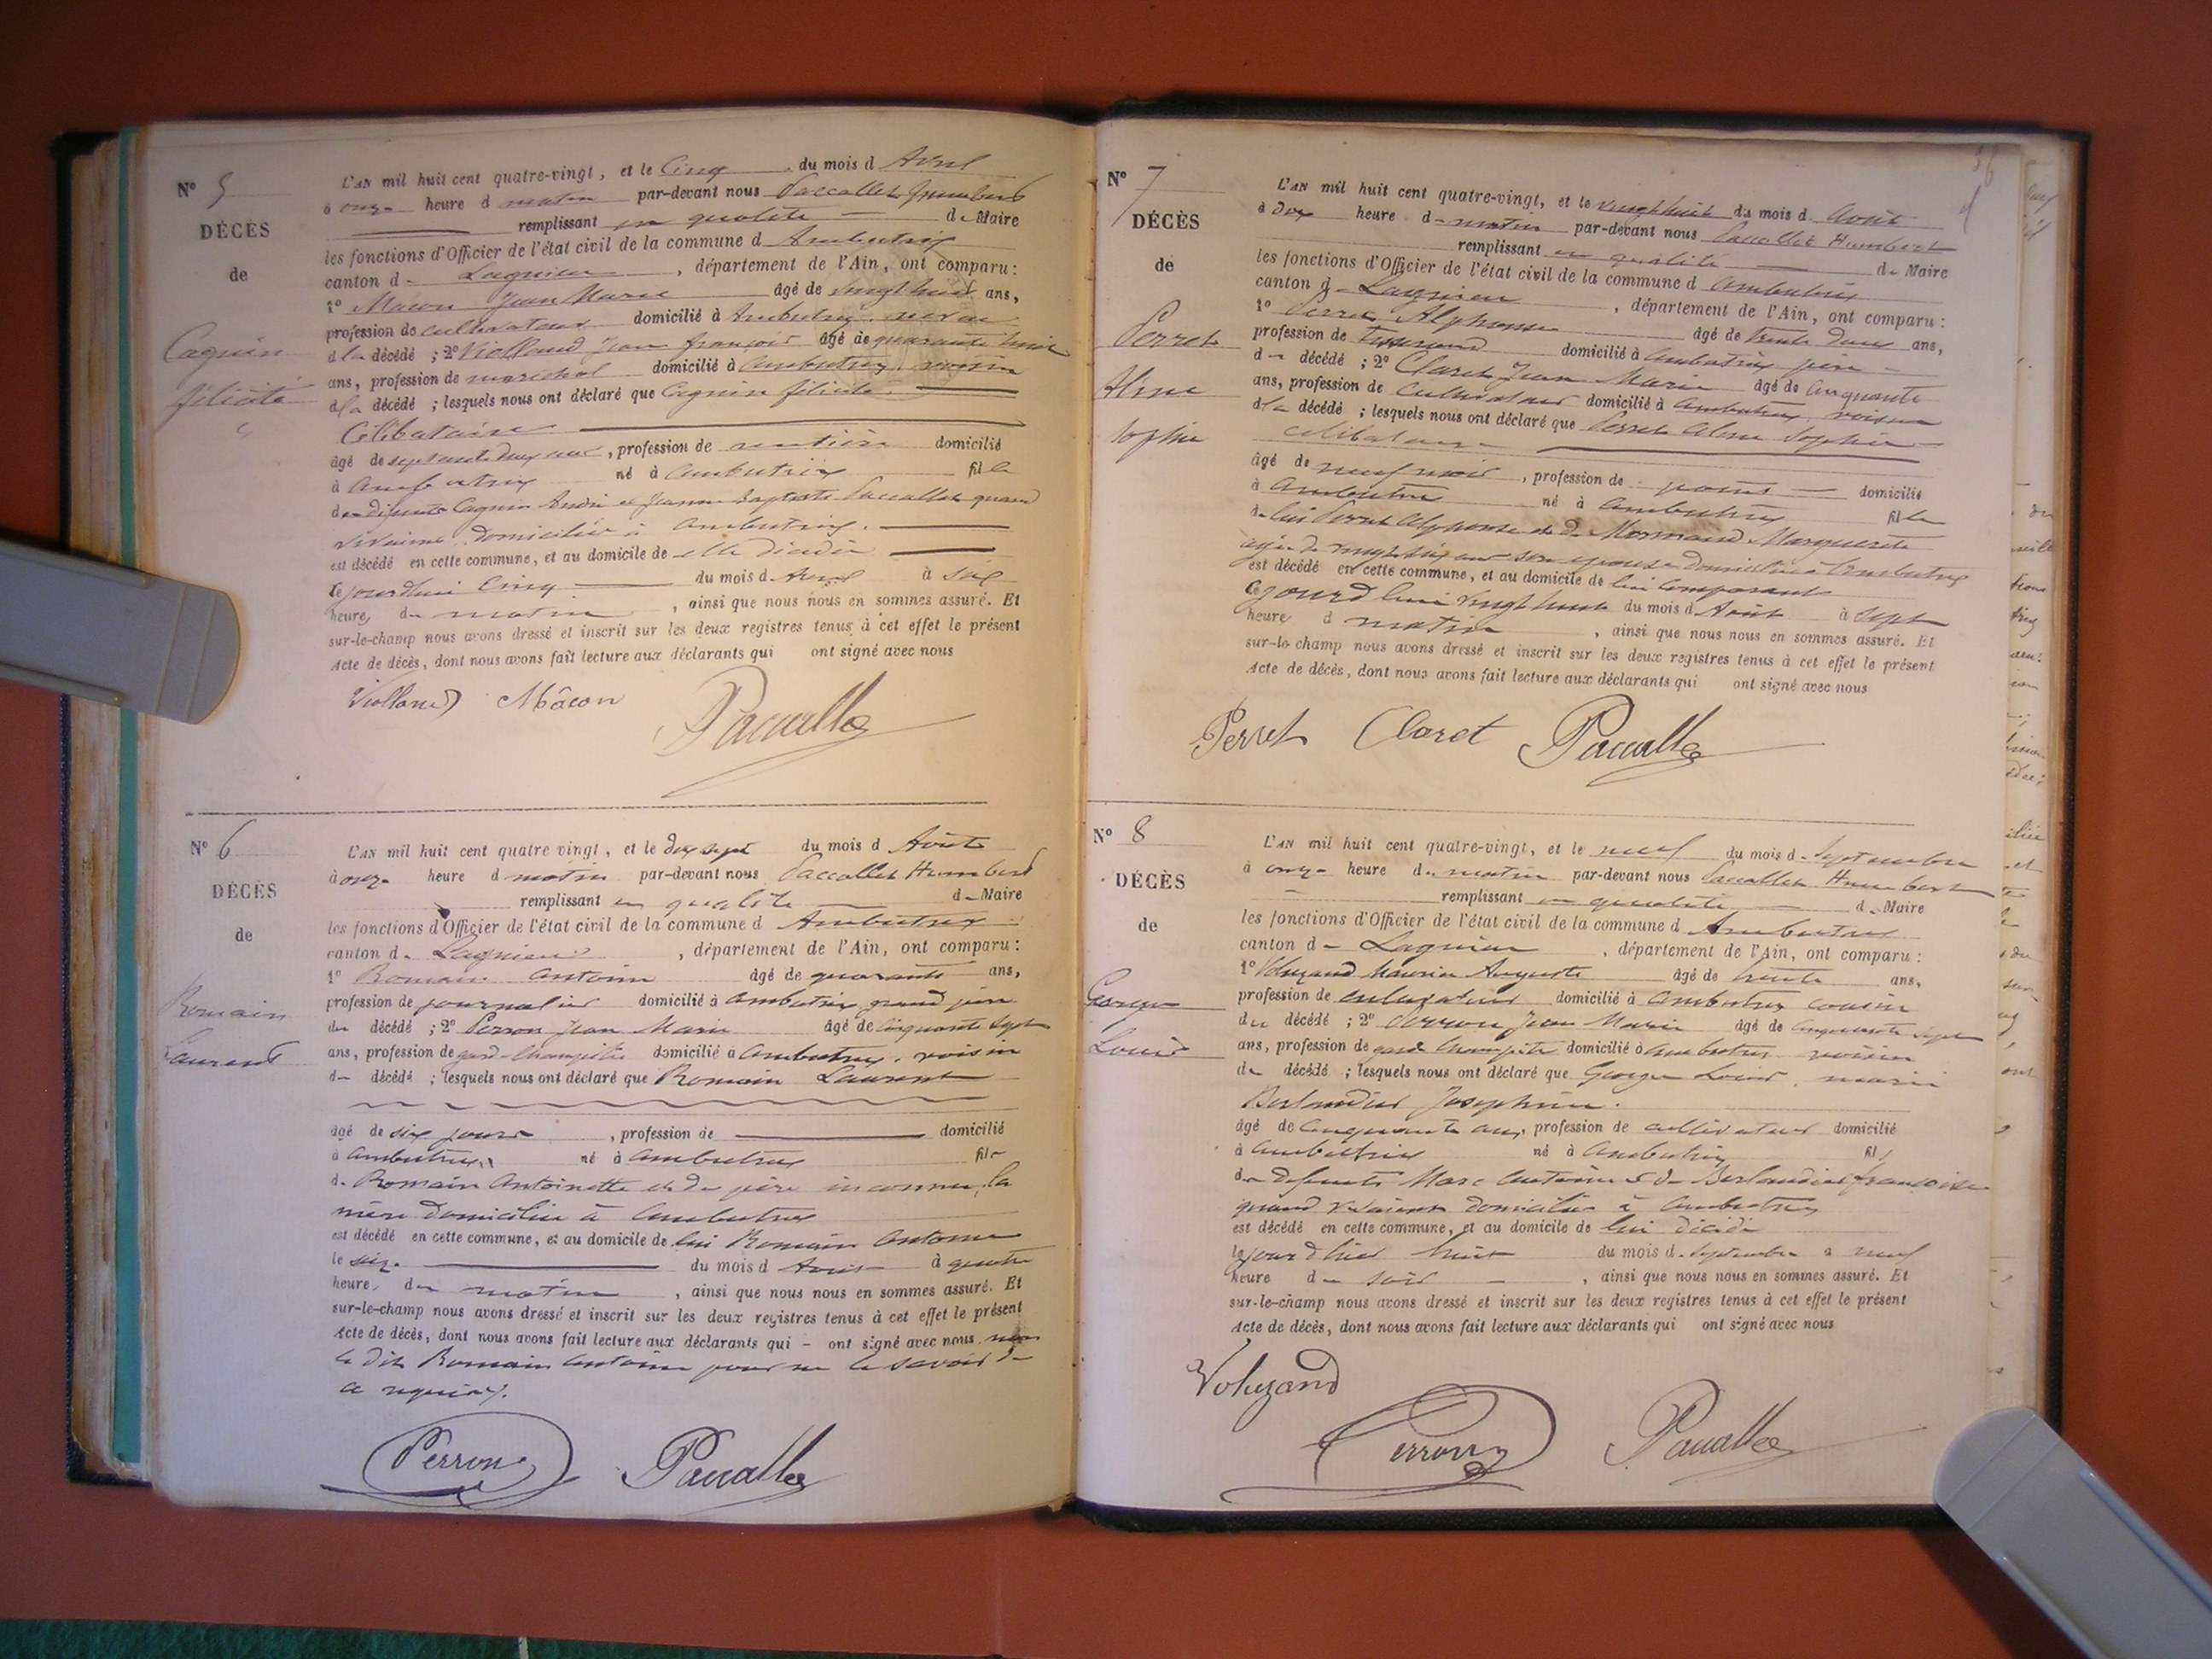 N° 5
DÉCÈS
de
Cagnin
félicité
L'AN mil huit cent quatre-vingt, et le Cinq du mois d Avril
à onze heure d matin par-devant nous Paccallet Humbert
remplissant en qualité de Maire
les fonctions d'Officier de l'état civil de la commune d Ambutrix
canton de Lagnieu, département de l'Ain, ont comparu :
1° Macon Jean Marie âgé de vingt huit ans,
profession de cultivateur domicilié à Ambutrix neveu
d la décédé ; 2° Violland Jean françois âgé de quarante huit
ans, profession de maréchal domicilié à Ambutrix voisin
d la décédé ; lesquels nous ont déclaré que Cagnin félicité
Célibataire
âgé de septante deux ans, profession de rentière domicilié
à Ambutrix né à Ambutrix fille
de défunts Cagnin André et Jeanne Baptiste Paccallet quand
vivaient domiciliés à Ambutrix.
est décédé en cette commune, et au domicile de elle décédée
ce jourdhui Cinq du mois d Avril à six
heures du matin, ainsi que nous nous en sommes assuré. Et
sur-le-champ nous avons dressé et inscrit sur les deux registres tenus à cet effet le présent
Acte de décès, dont nous avons fait lecture aux déclarants qui ont signé avec nous
Violland Mâcon Paccallet
N° 6
DÉCÈS
de
Romain
Laurent
L'AN mil huit cent quatre vingt, et le dix sept du mois d Août
à onze heure d matin par-devant nous Paccallet Humbert
remplissant en qualité de Maire
les fonctions d'Officier de l'état civil de la commune d Ambutrix
canton de Lagnieu, département de l'Ain, ont comparu :
1° Romain Antoine âgé de quarante ans,
profession de journalier domicilié à Ambutrix grand père
du décédé ; 2° Perron Jean Marie âgé de cinquante sept
ans, profession de gard-champêtre domicilié à Ambutrix, voisin
du décédé ; lesquels nous ont déclaré que Romain Laurent
âgé de six jours, profession de domicilié
à Ambutrix né à Ambutrix fils
de Romain Antoinette et de père inconnu, la
mère domiciliée à Ambutrix
est décédé en cette commune, et au domicile de lui Romain Antoine
le seize du mois d Août à quatre
heure du matin, ainsi que nous nous en sommes assuré. Et
sur-le-champ nous avons dressé et inscrit sur les deux registres tenus à cet effet le présent
Acte de décès, dont nous avons fait lecture aux déclarants qui – ont signé avec nous non
le dit Romain Antoine pour ne le savoir de
ce requis.
Perron Paccallet
N° 7
DÉCÈS
de
Perret
Aline
Sophie
L'AN mil huit cent quatre-vingt, et le vingt huit du mois d Août
à dix heure de matin par-devant nous Paccallet Humbert
remplissant en qualité de Maire
les fonctions d'Officier de l'état civil de la commune d Ambutrix
canton de Lagnieu, département de l'Ain, ont comparu :
1° Perret Alphonse âgé de trente deux ans,
profession de tisserand domicilié à Ambutrix père
de décédé ; 2° Claret Jean Marie âgé de cinquante
ans, profession de cultivateur domicilié à Ambutrix, voisin
d la décédé ; lesquels nous ont déclaré que Perret Aline Sophie
célibataire
âgé de neuf mois, profession de domicilié
à Ambutrix né à Ambutrix fille
de lui Perret Alphonse et de Mormand Marguerite
âgée de vingt six ans son épouse domiciliée à Ambutrix
est décédé en cette commune, et au domicile de lui comparant
ce jourd hui vingt huit du mois d Août à sept
heure d matin, ainsi que nous nous en sommes assuré. Et
sur-le-champ nous avons dressé et inscrit sur les deux registres tenus à cet effet le présent
Acte de décès, dont nous avons fait lecture aux déclarants qui ont signé avec nous
Perret Claret Paccallet
N° 8
DÉCÈS
de
George
Louis
L'AN mil huit cent quatre-vingt, et le neuf du mois de Septembre
à onze heure du matin par-devant nous Paccallet Humbert
remplissant en qualité de Maire
les fonctions d'Officier de l'état civil de la commune d Ambutrix
canton de Lagnieu, département de l'Ain, ont comparu :
1° Voluzand Auguste âgé de trente ans,
profession de cultivateur domicilié à Ambutrix cousin
du décédé ; 2° Perron Jean Marie âgé de cinquante sept
ans, profession de garde champêtre domicilié à Ambutrix voisin
du décédé ; lesquels nous ont déclaré que George Louis, marié
Berlandier Josephine.
âgé de Cinquante ans, profession de cultivateur domicilié
à Ambutrix né à Ambutrix fils
de defunts Marc Antoine & de Berlandier françoise
quand vivaient domiciliés à Ambutrix
est décédé en cette commune, et au domicile de lui décédé
le jour d'hier huit du mois de Septembre à neuf
heure du soir, ainsi que nous nous en sommes assuré. Et
sur-le-champ nous avons dressé et inscrit sur les deux registres tenus à cet effet le présent
Acte de décès, dont nous avons fait lecture aux déclarants qui ont signé avec nous
Voluzand
Perron Paccallet